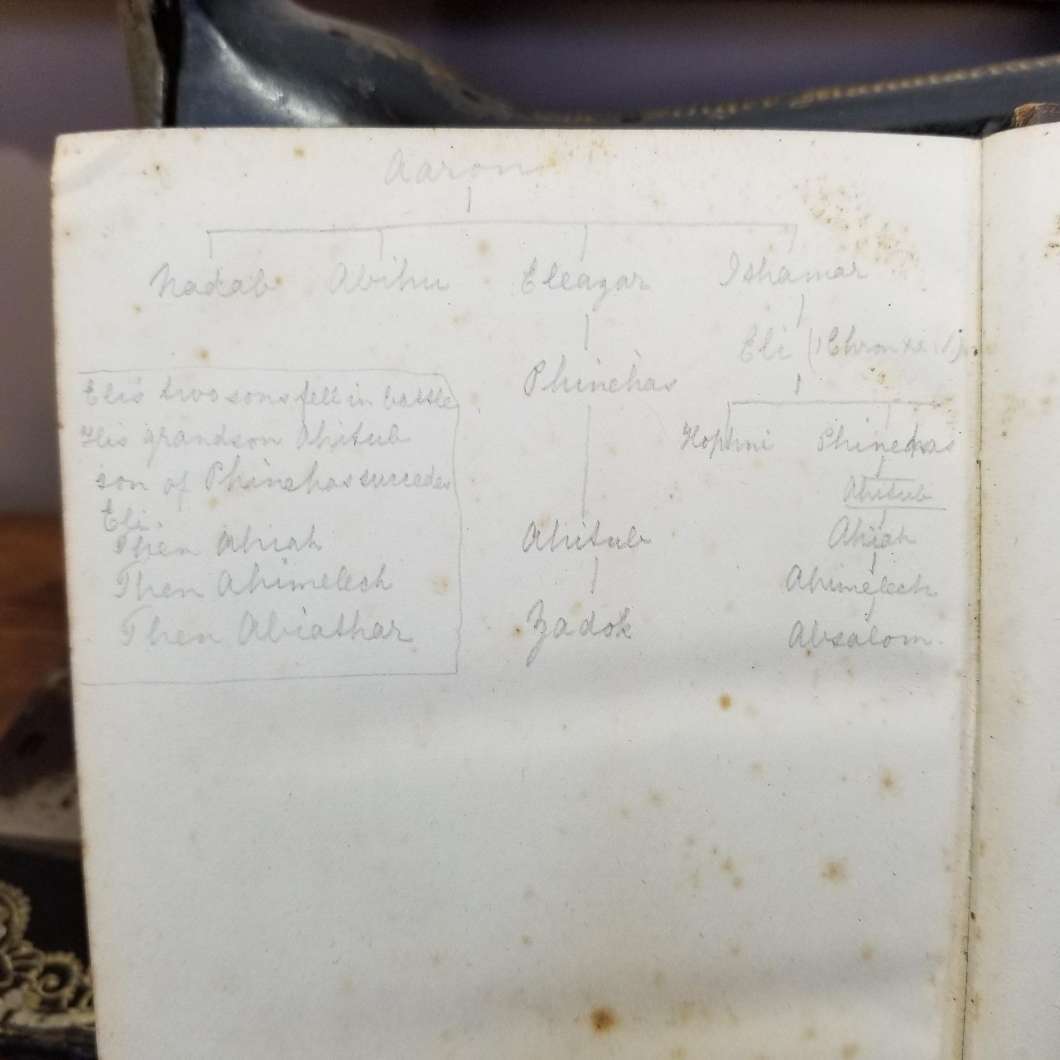 Aaron
Nadab Abihu Eleazar Ithamar
Eli (1 Chron
Phinehas
Hophni Phinehas
Ahitub
Ahitub Ahiah
Ahimelech
Zadok Absalom.
Eli's two sons fell in battle
His grandson Ahitub
son of Phinehas succedes
Eli.
Then Ahiah
Then Ahimelech
Then Abiathar